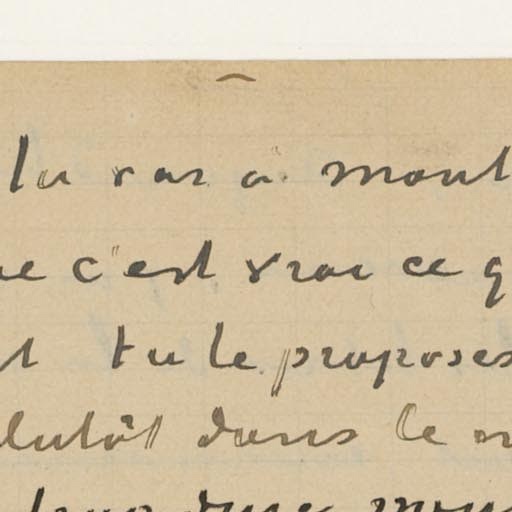 tu vas à mont
ue c'est vrai ce q
t tu le proposes
plutôt dans le m